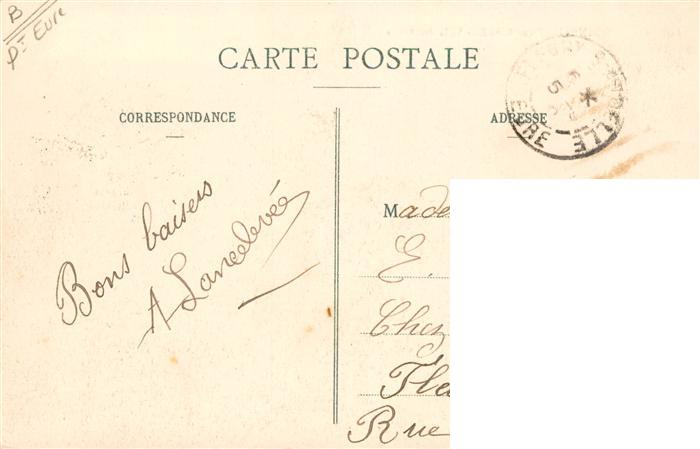 B
Pt Eure
CARTE POSTALE
CORRESPONDANCE
ADRESSE
Bons baisers
A Lancelevée
Made
E.
Chez
Fle
Rue
EURE